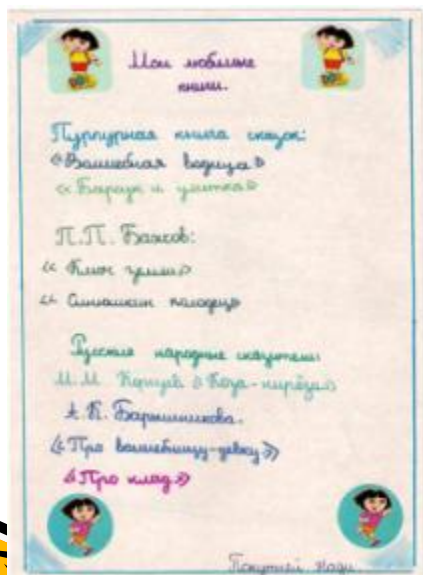 Мои любимые
книги.
Пурпурная книга сказок:
«Волшебная водица»
«Барсук и улитка»
П.П. Бажов:
«Ключ земли»
«Синюшкин колодец»
Русские народные сказители:
М.М. Коргуев «Коза-»
А.К. Барышникова.
«Про волшебницу-девку»
«Про клад»